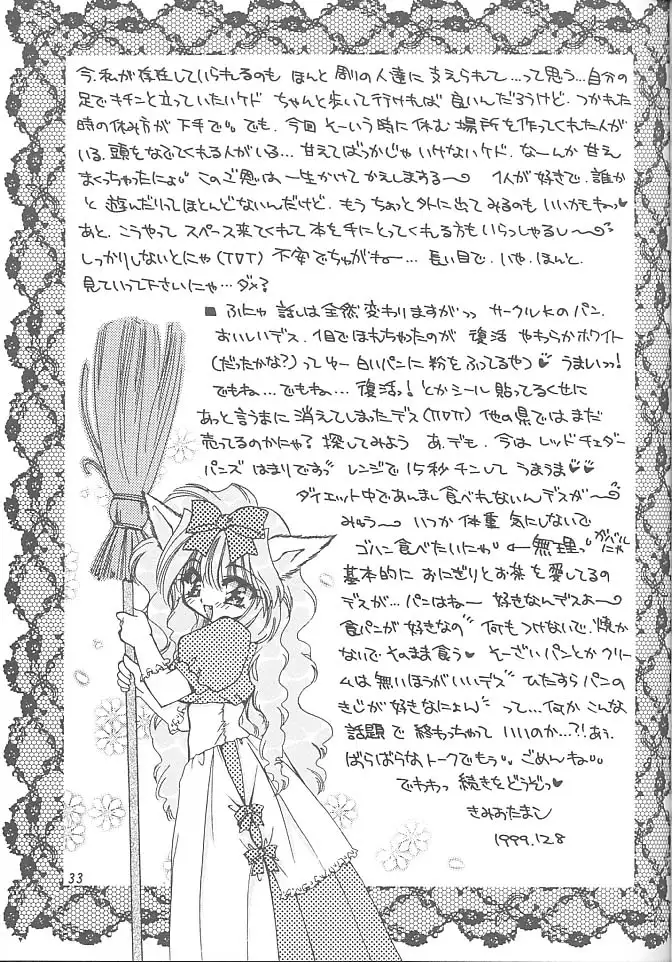 今、私が存在していられるのも ほんと周りの人達に支えられて…って思う…自分の
足でキチンと立っていたいケド ちゃんと歩いて行ければ良いんだろうけど、つかれた
時の休み方が下手で。でも、今回そーいう時に休む場所を作ってくれた人が
いる、頭をなでてくれる人がいる…甘えてばっかじゃいけないケド、なーんか甘え
まくっちゃったにょ。このご恩は一生かけてかえしまする〜 1人が好きで、誰か
と遊んだりってほとんどないんだけど、もうちょっと外に出てみるのもいいかもねっ
あと、こうやってスペース来てくれて本を手にとってくれる方もいらっしゃるし〜
しっかりしないとにゃ(TDT) 不安でちゅがねー… 長い目で、いや、ほんと、
見ていって下さいにゃ…ダメ?
■ふにゃ 話しは全然変わりますがっっ サークルKのパン、
おいしいデス、1目でほれちゃったのが 復活 やわらかホワイト
(だったかな?)ってゆー白いパンに粉をふってるやつ うまいっ!
でもね…でもね… 復活っ!とかシール貼ってるくせに
あっと言うまに消えてしまったデス(TDT) 他の県ではまだ
売ってるのかにゃ?探してみよう あ、でも、今はレッドチェダー
パニーズ はまりですっ レンジで15秒チンして うまうま
ダイエット中であんまし食べれないんデスが〜
みゅう〜 いつか体重気にしないで
ゴハン食べたいにゃ ←無理っ ガンバルにゃ
基本的に おにぎりとお茶を愛してるの
デスが…パンはねー 好きなんデスよ〜
食パンが好きなの 何もつけないで、焼か
ないで そのまま食う そーざいパンとかクリー
ムは無いほうがいいデス ひたすらパンの
きじが好きなにょん って…何かこんな
話題で終わっちゃっていいのか…?!あぅ
ばらばらなトークでもぅ。ごめんね。
でわわっ 続きをどうぞっ
きみおたまこ
1999.12.8
33